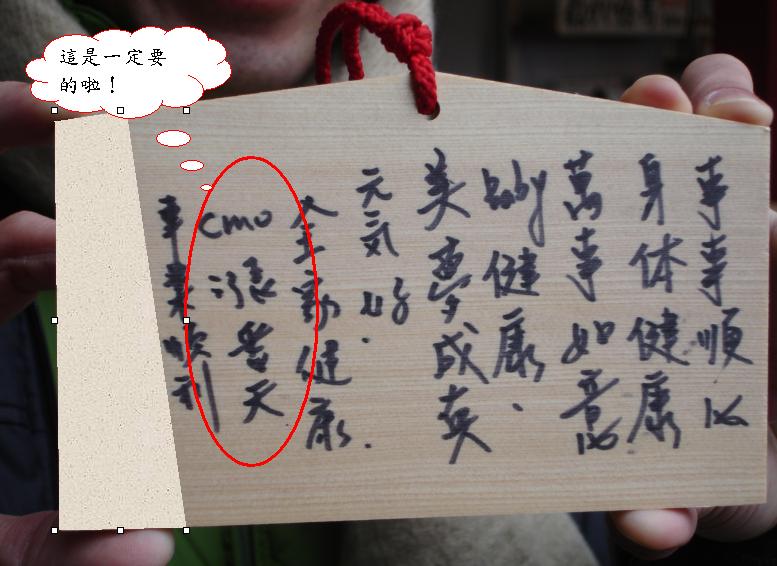 這是一定要
的啦！
事事順心
身体健康
萬事如意
baby健康.
美夢成真
元気好.
全 健康.
cmo漲番天
事業順利